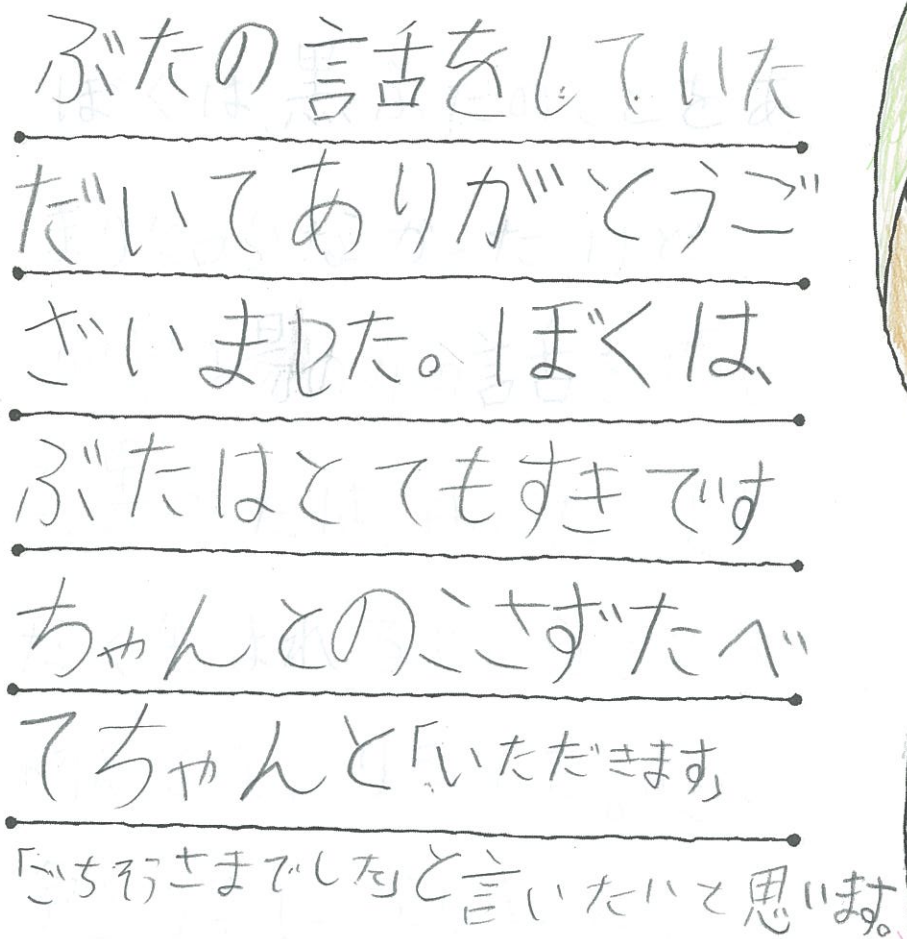 ぶたの話をしていた
だいてありがとうご
ざいました。ぼくは、
ぶたはとてもすきです
ちゃんとのこさずたべ
てちゃんと「いただきます」
「ごちそうさまでした」と言いたいと思います。